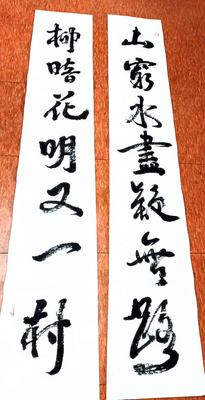 山窮水盡疑無路
柳暗花明又一村